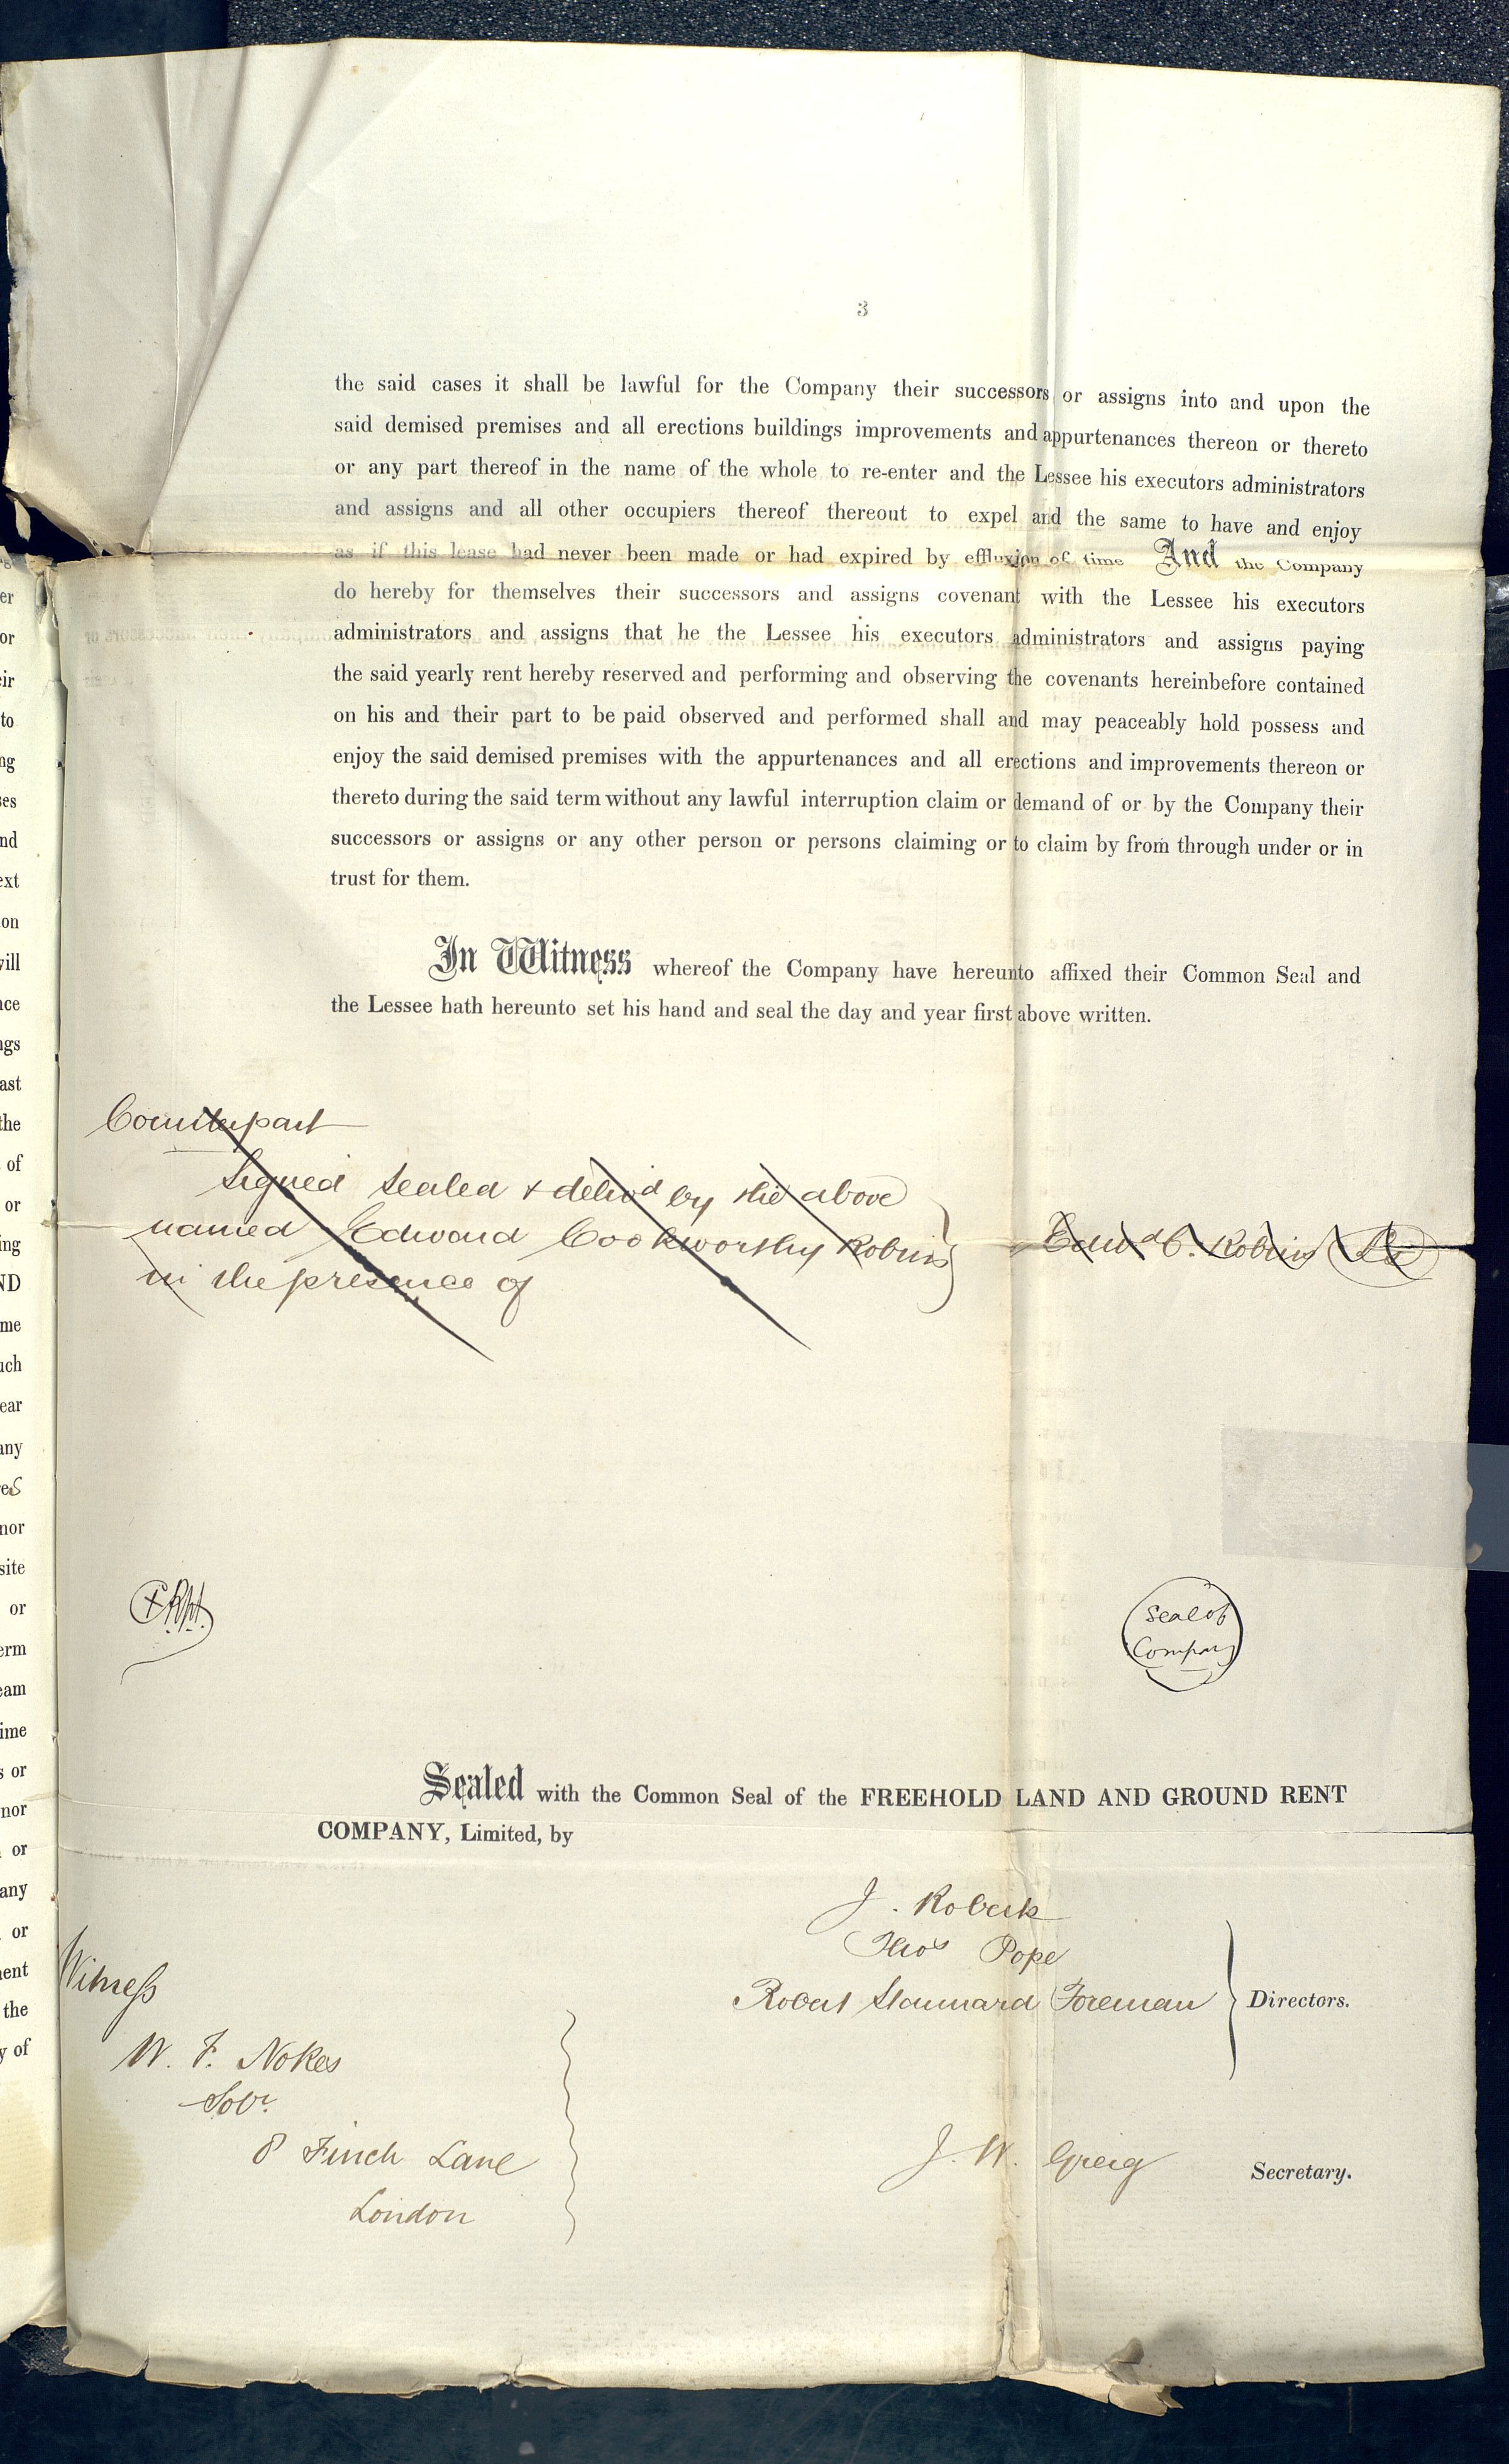 3
the said cases it shall be lawful for the Company their successors or assigns into and upon the
said demised premises and all erections buildings improvements and appurtenances thereon or thereto
or any part thereof in the name of the whole to re-enter and the Lessee his executors administrators
and assigns and all other occupiers thereof thereout to expel and the same to have and enjoy
as if this lease had never been made or had expired by effluxion of time And the Company
do hereby for themselves their successors and assigns covenant with the Lessee his executors
administrators and assigns that he the Lessee his executors administrators and assigns paying
the said yearly rent hereby reserved and performing and observing the covenants hereinbefore contained
on his and their part to be paid observed and performed shall and may peaceably hold possess and
enjoy the said demised premises with the appurtenances and all erections and improvements thereon or
thereto during the said term without any lawful interruption claim or demand of or by the Company their
successors or assigns or any other person or persons claiming or to claim by from through under or in
trust for them.
In Witness whereof the Company have hereunto affixed their Common Seal and
the Lessee hath hereunto set his hand and seal the day and year first above written.
Counterpart
Signed Sealed & deliv'd by the above
named Edward Cookworthy Robins
in the presence of
Edwd C. Robins LS
Seal of
Company
Sealed with the Common Seal of the FREEHOLD LAND AND GROUND RENT
COMPANY, Limited, by
J. Robeck
Thos Pope
Robert Stannard Foreman
Directors.
Witness
W. F. Nokes
Solr
8 Finch Lane
London
J. W. Greig
Secretary.
er
or
eir
to
ng
ses
nd
ext
on
vill
nce
ngs
ast
the
of
or
ing
ND
me
uch
ear
any
res
nor
site
or
erm
eam
ime
s or
nor
or
any
or
ment
the
y of